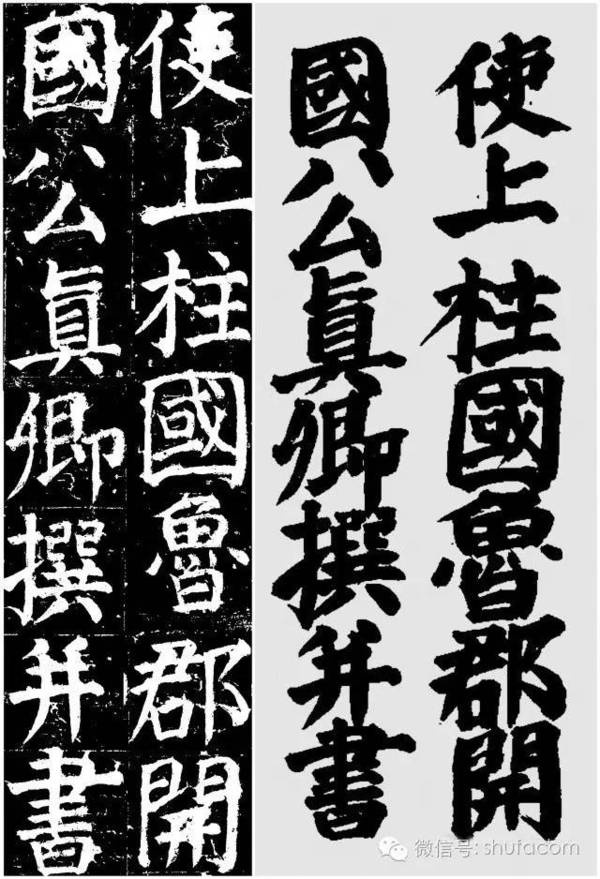 使上柱國魯郡開
國公真卿撰并書
使上柱國魯郡開
國公真卿撰并書
微信号: shufacom